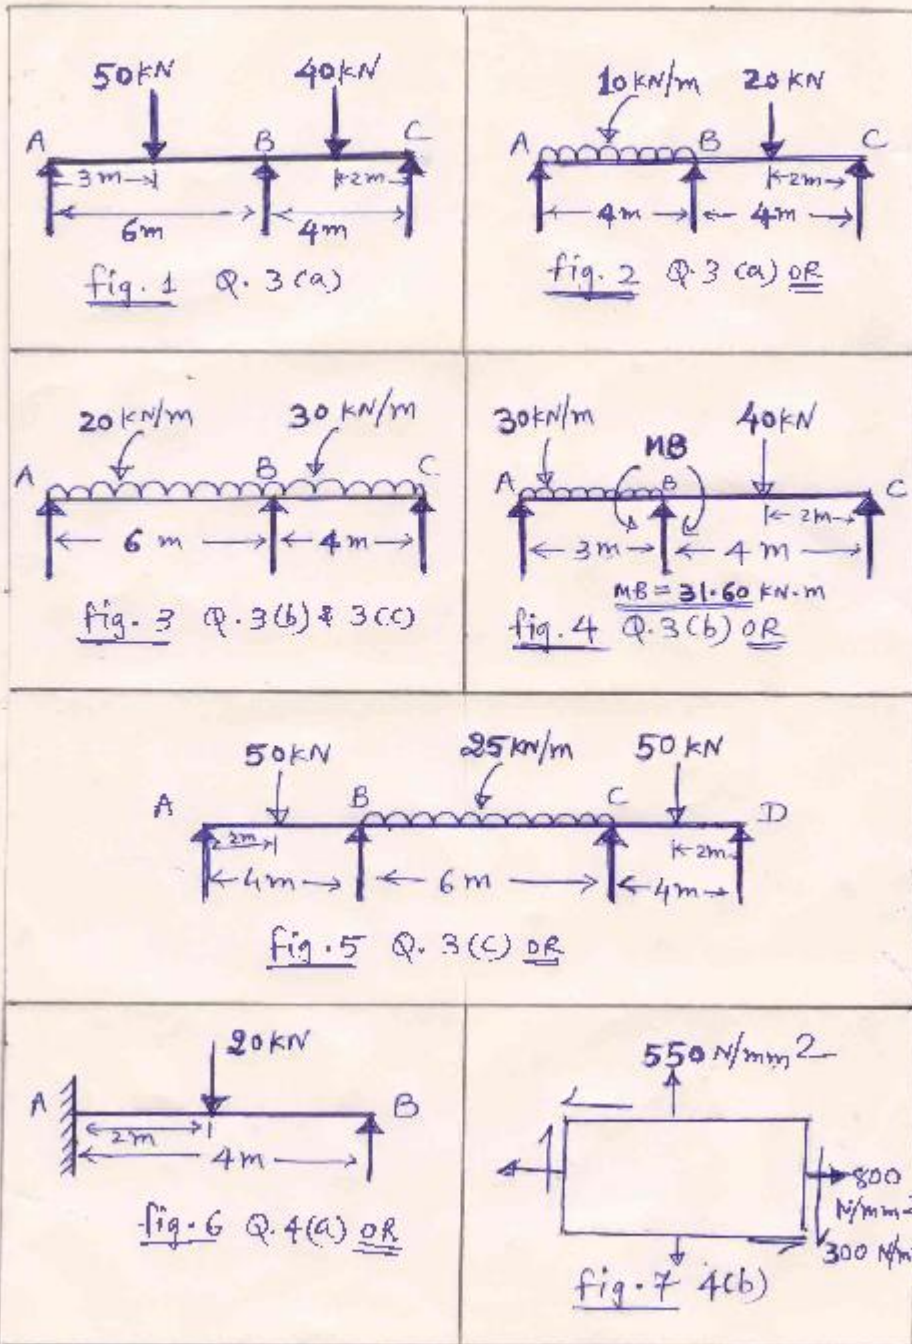 50KN 40KN
A B C
3m 2m
6m 4m
fig. 1 Q. 3(a)
10KN/m 20KN
A B C
2m
4m 4m
fig. 2 Q. 3 (a) OR
20KN/m 30 KN/m
A B C
6 m 4m
fig. 3 Q. 3(b) & 3(c)
30KN/m MB 40KN
A B C
2m
3m 4 m
MB = 31.60 KN.m
fig. 4 Q. 3(b) OR
50KN 25KN/m 50 KN
A B C D
2m 2m
4m 6m 4m
fig. 5 Q. 3(C) OR
20KN
A B
2m
4m
fig. 6 Q. 4(a) OR
550 N/mm2
800
N/mm
300 N/m
fig. 7 4(b)